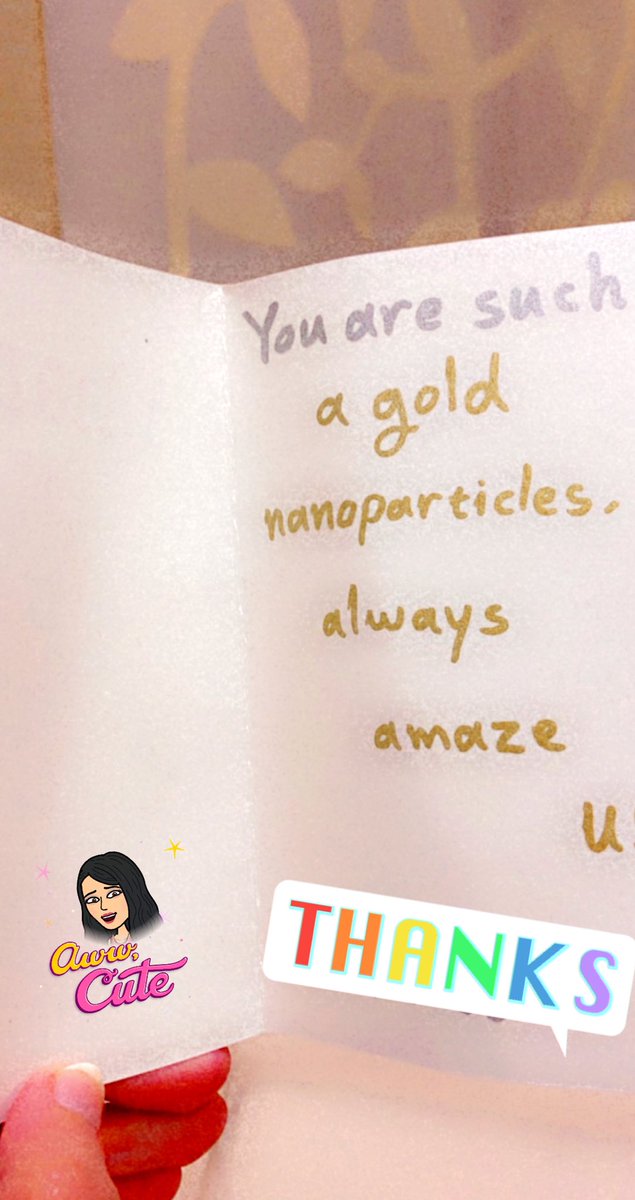 You are such
a gold
nanoparticles.
always
amaze
Aww,
Cute
THANKS